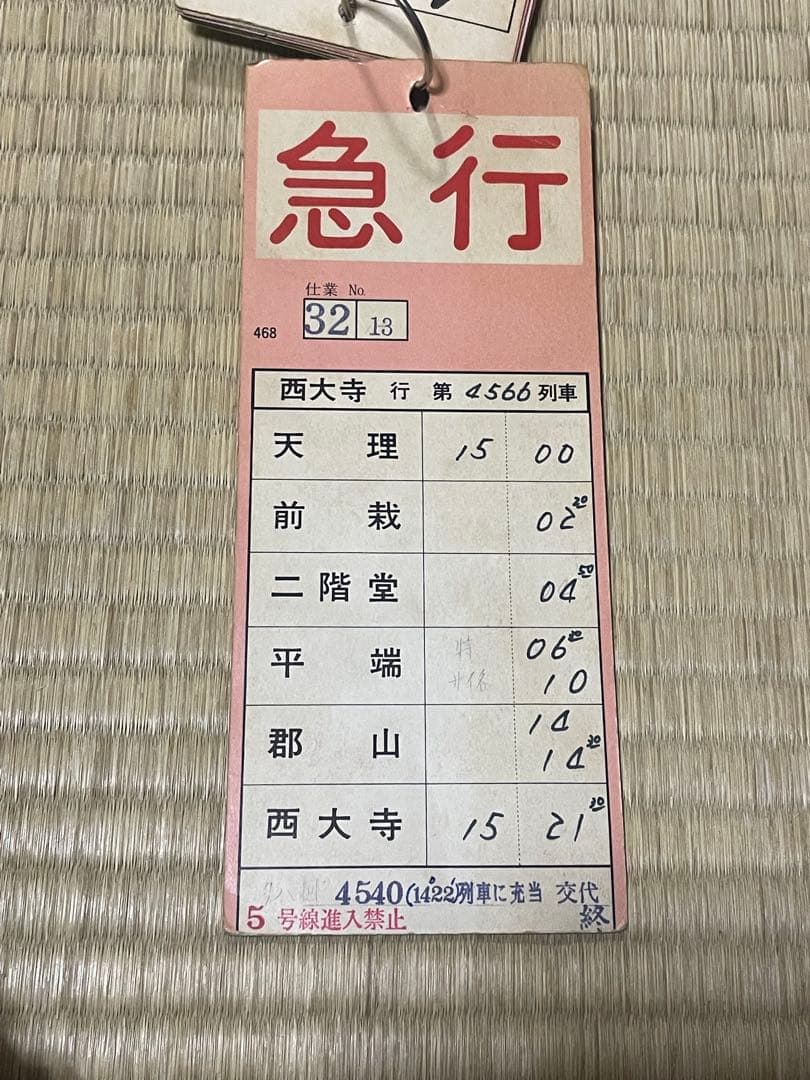 急行
仕業 No.
468 32 13
西大寺 行 第 4566 列車
天理 15 00
前栽 02 20
二階堂 04 50
平端 特 06 20
10
郡山 14
14 30
西大寺 15 21 30
4540(1422)列車に充当 交代
5 号線進入禁止 終